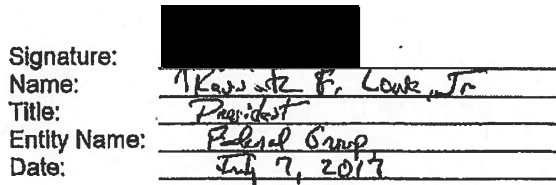 Signature:
Name: F. Lowe, Jr
Title: President
Entity Name: Federal Group
Date: July 7, 2017